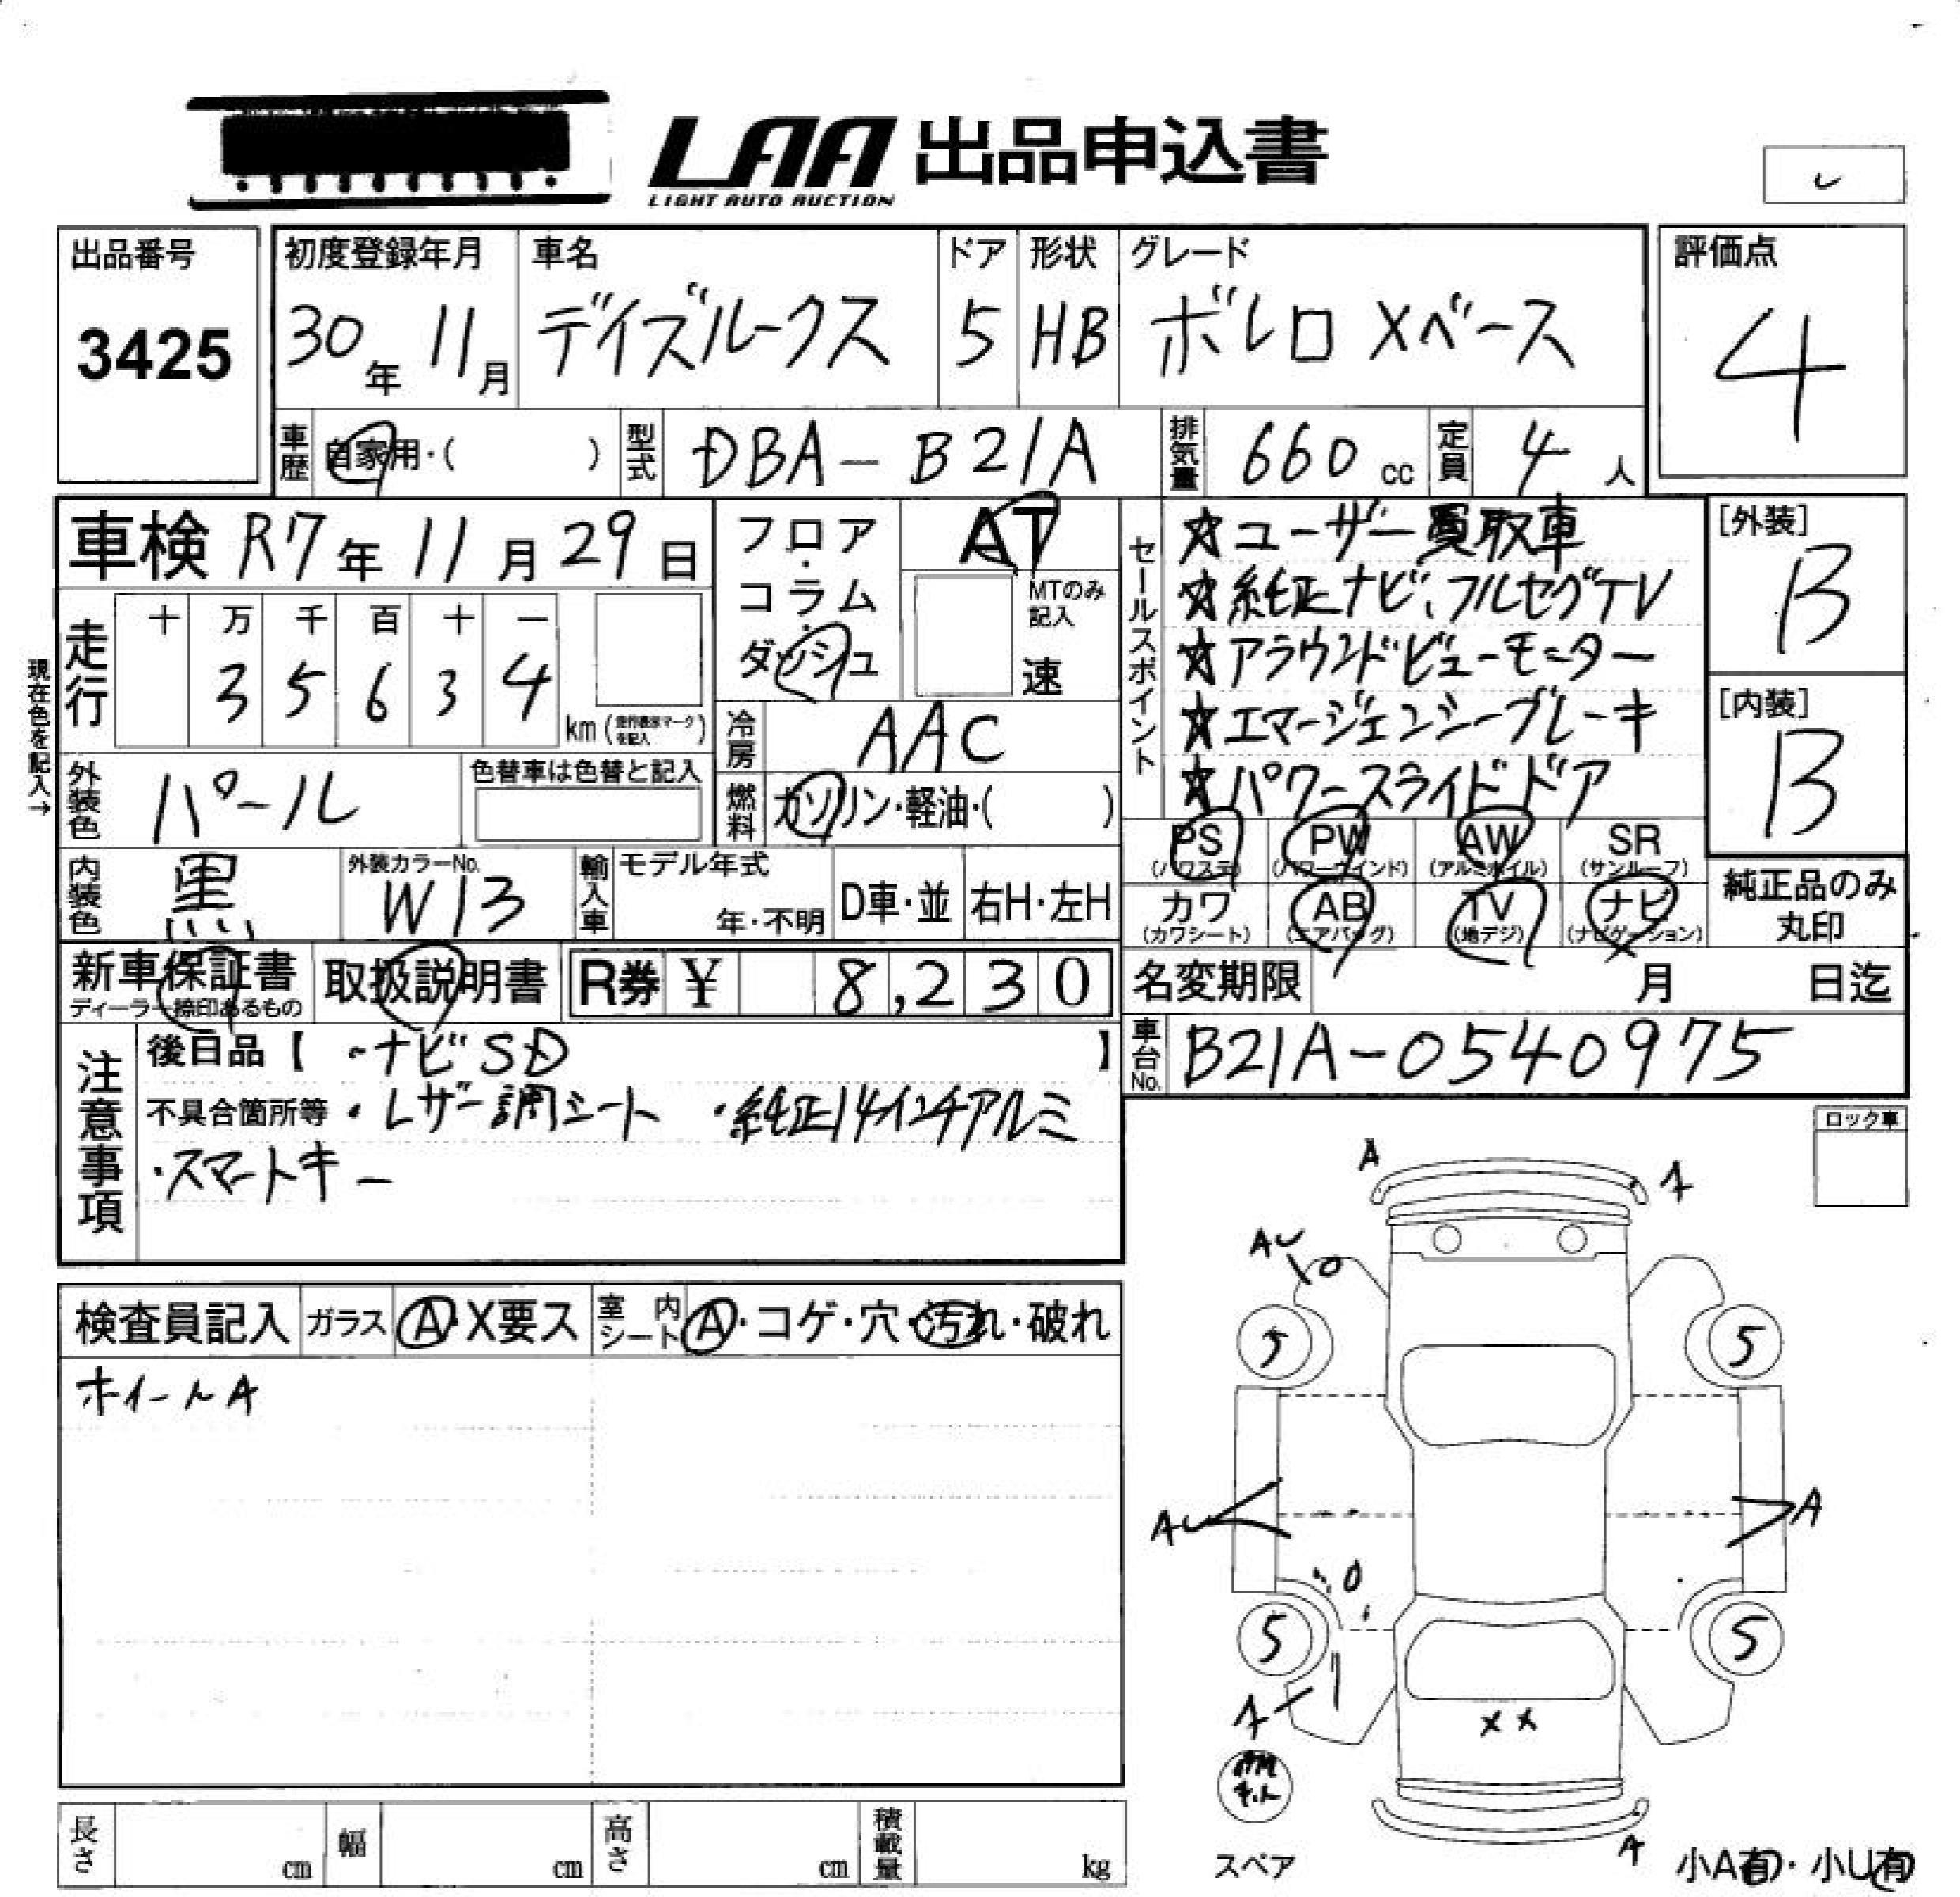 LAA 出品申込書
LIGHT AUTO AUCTION
出品番号
3425
初度登録年月
30年 11月
車名
デイズルークス
ドア
5
形状
HB
グレード
ボレロ Xベース
評価点
4
車歴 自家用・( )
型式 DBA-B21A
排気量 660cc
定員 4人
車検 R7年11月29日
走行
十 万 千 百 十 一
3 5 6 3 4
km(走行要示マークを記入)
現在色を記入→
フロア・コラム・ダッシュ
AT
MTのみ記入
速
冷房 AAC
燃料 ガソリン・軽油・( )
外装色 パール
色替車は色替と記入
内装色 黒
外装カラーNo.
W13
輸入車
モデル年式
年・不明
D車・並
右H・左H
セールスポイント
☆ユーザー買取車
☆純正ナビ、フルセグTV
☆アラウンドビューモニター
☆エマージェンシーブレーキ
☆パワースライドドア
[外装]
B
[内装]
B
PS (パワステ)
PW (パワーウインド)
AW (アルミホイル)
SR (サンルーフ)
カワ (カワシート)
AB (エアバッグ)
TV (地デジ)
ナビ (ナビゲーション)
純正品のみ
丸印
新車保証書
ディーラー捺印あるもの
取扱説明書
R券 ¥ 8,230
名変期限 月 日迄
車台No. B21A-0540975
注意事項
後日品【 ・ナビSD 】
不具合箇所等 ・レザー調シート ・純正14インチアルミ
・スマートキー
ロック車
検査員記入
ガラス A・X要ス
室内シート A・コゲ・穴・汚れ・破れ
ホイールA
A
A
AU
5
5
AU
A
5
5
A
XX
スペア
A
小A有・小U有
長さ cm
幅 cm
高さ cm
積載量 kg